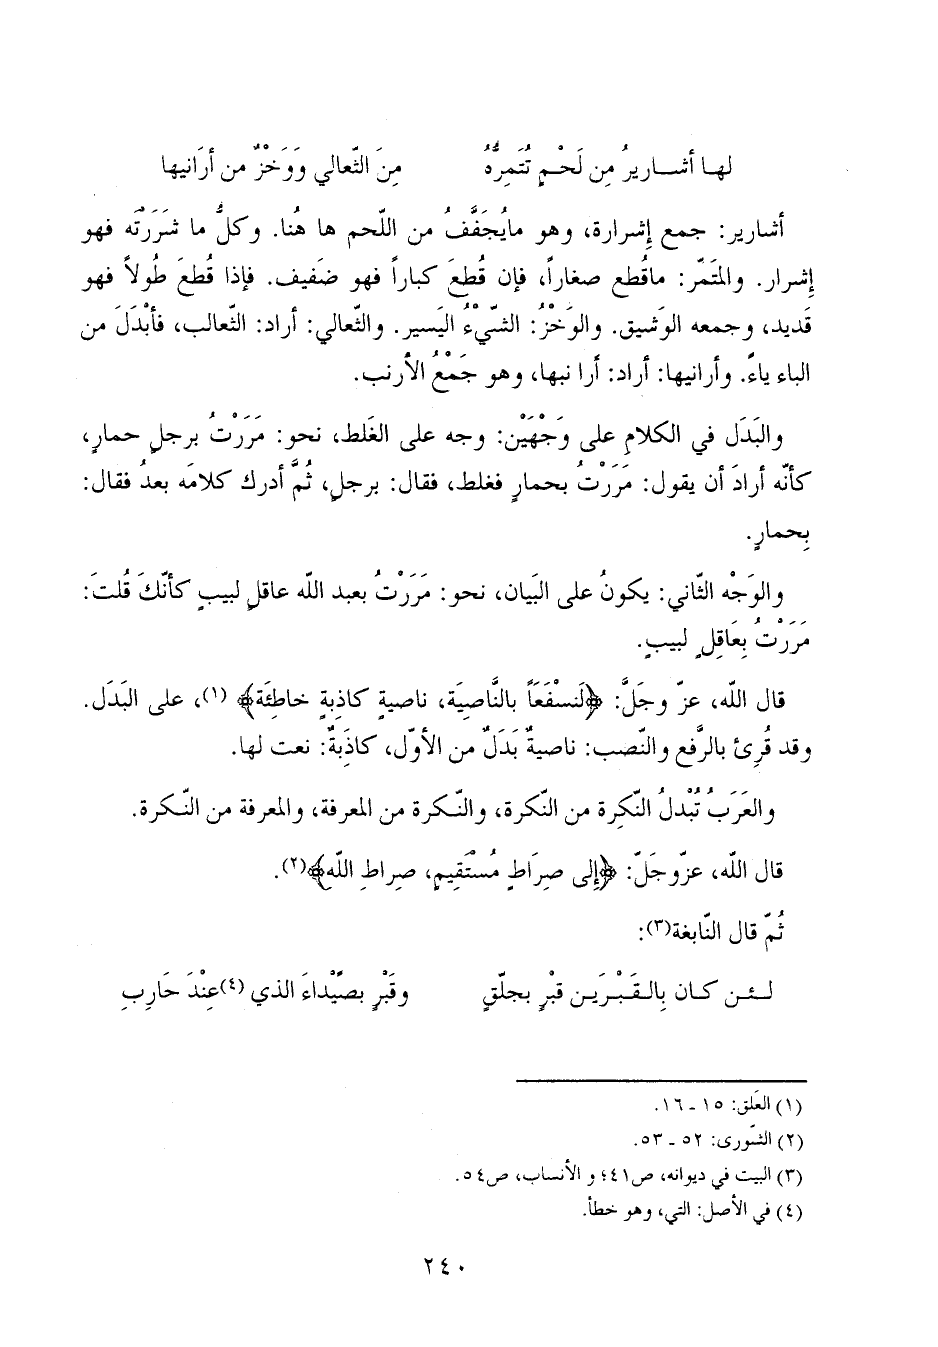 لها أشارير من لَحْمٍ تُتَمِرُّهُ من الثّعالي وَوَخْزٌ من أرَانيها
أشارير: جمع إشرارة، وهو مايُجَفَّفُ من اللّحم ها هُنا. وكلُّ ما شَرَرْتَه فهو
إشرار. والمتَمّر: ماقُطع صغاراً، فإن قُطعَ كباراً فهو ضَفيف. فإذا قُطعَ طُولاً فهو
قَديد، وجمعه الوَشيق. والوَخْزُ: الشّيْءُ اليَسير. والثّعالي: أراد: الثّعالب، فأبْدَلَ من
الباء ياءً. وأرانيها: أراد: أرا نبها، وهو جَمْعُ الأرنب.
والبَدَل في الكلامِ على وَجْهَيْن: وجه على الغَلط، نحو: مَرَرْتُ برجلٍ حمارٍ،
كأنّه أرادَ أن يقول: مَرَرْتُ بحمارٍ فغلط، فقال: برجلٍ، ثُمَّ أدرك كلامَه بعدُ فقال:
بِحمارٍ.
والوَجْه الثّاني: يكونُ على البَيان، نحو: مَرَرْتُ بعبد الله عاقلٍ لبيبٍ كأنّكَ قُلتَ:
مَرَرْتُ بِعَاقِلٍ لبيبٍ.
قال الله، عزّ وجَلَّ: ﴿لَنسْفَعَاً بالنَّاصيَة، ناصيةٍ كاذبةٍ خاطئَة﴾ (١)، على البَدَل.
وقد قُرِئ بالرَّفع والنّصب: ناصيةٌ بَدَلٌ من الأوّل، كاذَبةٌ: نعت لها.
والعَرَبُ تُبْدلُ النّكرة من النّكرة، والنّـكرة من المعرفة، والمعرفة من النّـكرة.
قال الله، عزّوجَلّ: ﴿إلى صِرَاطٍ مُسْتَقيمٍ، صِراطِ اللّهِ﴾(٢).
ثُمّ قال النّابغة(٣):
لـئـن كـان بِالـقَـبْـرَيـن قبْرٍ بجلّقٍ وقَبْرٍ بصَيْداءَ الذي (٤)عِنْدَ حَارِبِ
(١) العَلق: ١٥ ـ ١٦.
(٢) الشّورى: ٥٢ ـ ٥٣.
(٣) البيت في ديوانه، ص٤١؛ و الأنساب، ص٥٤.
(٤) في الأصل: التي، وهو خطأ.
٢٤٠